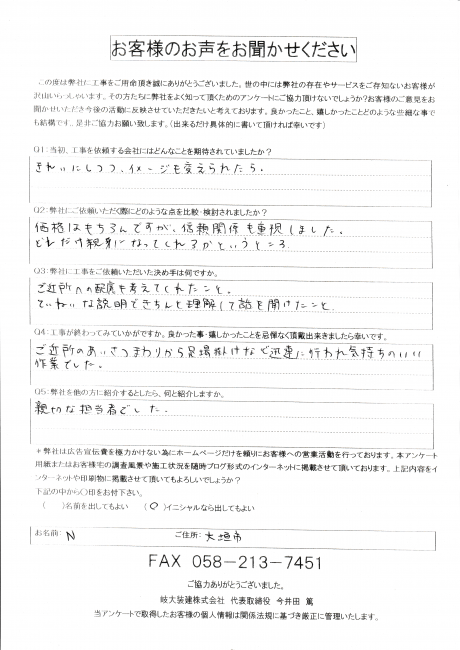 お客様のお声をお聞かせください
この度は弊社に工事をご用命頂き誠にありがとうございました。世の中には弊社の存在やサービスをご存知ないお客様が
沢山いらっしゃいます。その方たちに弊社をよく知って頂くためのアンケートにご協力頂けないでしょうか?お客様のご意見をお
聞かせいただき今後の活動に反映させていただきたいと考えております。良かったこと、嬉しかったことどのような些細な事で
も結構です、是非ご協力お願い致します。（出来るだけ具体的に書いて頂ければ幸いです）
Q1：当初、工事を依頼する会社にはどんなことを期待されていましたか?
きれいにしつつ、イメージも変えられたら.
Q2：弊社にご依頼いただく際にどのような点を比較・検討されましたか?
価格はもちろんですが、信頼関係も重視しました.
どれだけ親身になってくれるかというところ.
Q3：弊社に工事をご依頼いただいた決め手は何ですか。
ご近所への配慮も考えてくれたこと.
ていねいな説明できちんと理解して話を聞けたこと
Q4：工事が終わってみていかがですか。良かった事・嬉しかったことを忌憚なく頂戴出来きましたら幸いです。
ご近所のあいさつまわりから足場掛けなど迅速に行われ気持ちのいい
作業でした.
Q5：弊社を他の方に紹介するとしたら、何と紹介しますか。
親切な担当者でした.
＊弊社は広告宣伝費を極力かけない為にホームページだけを頼りにお客様への営業活動を行っております。本アンケート
用紙またはお客様宅の調査風景や施工状況を随時ブログ形式のインターネットに掲載させて頂いております。上記内容をイ
ンターネットや印刷物に掲載させて頂いてもよろしいでしょうか?
下記の中から〇印をお付下さい。
（　）名前を出してもよい （○）イニシャルなら出してもよい
お名前： N ご住所： 大垣市
FAX 058-213-7451
ご協力ありがとうございました。
岐大装建株式会社 代表取締役 今井田 篤
当アンケートで取得したお客様の個人情報は関係法規に基づき厳正に管理いたします。